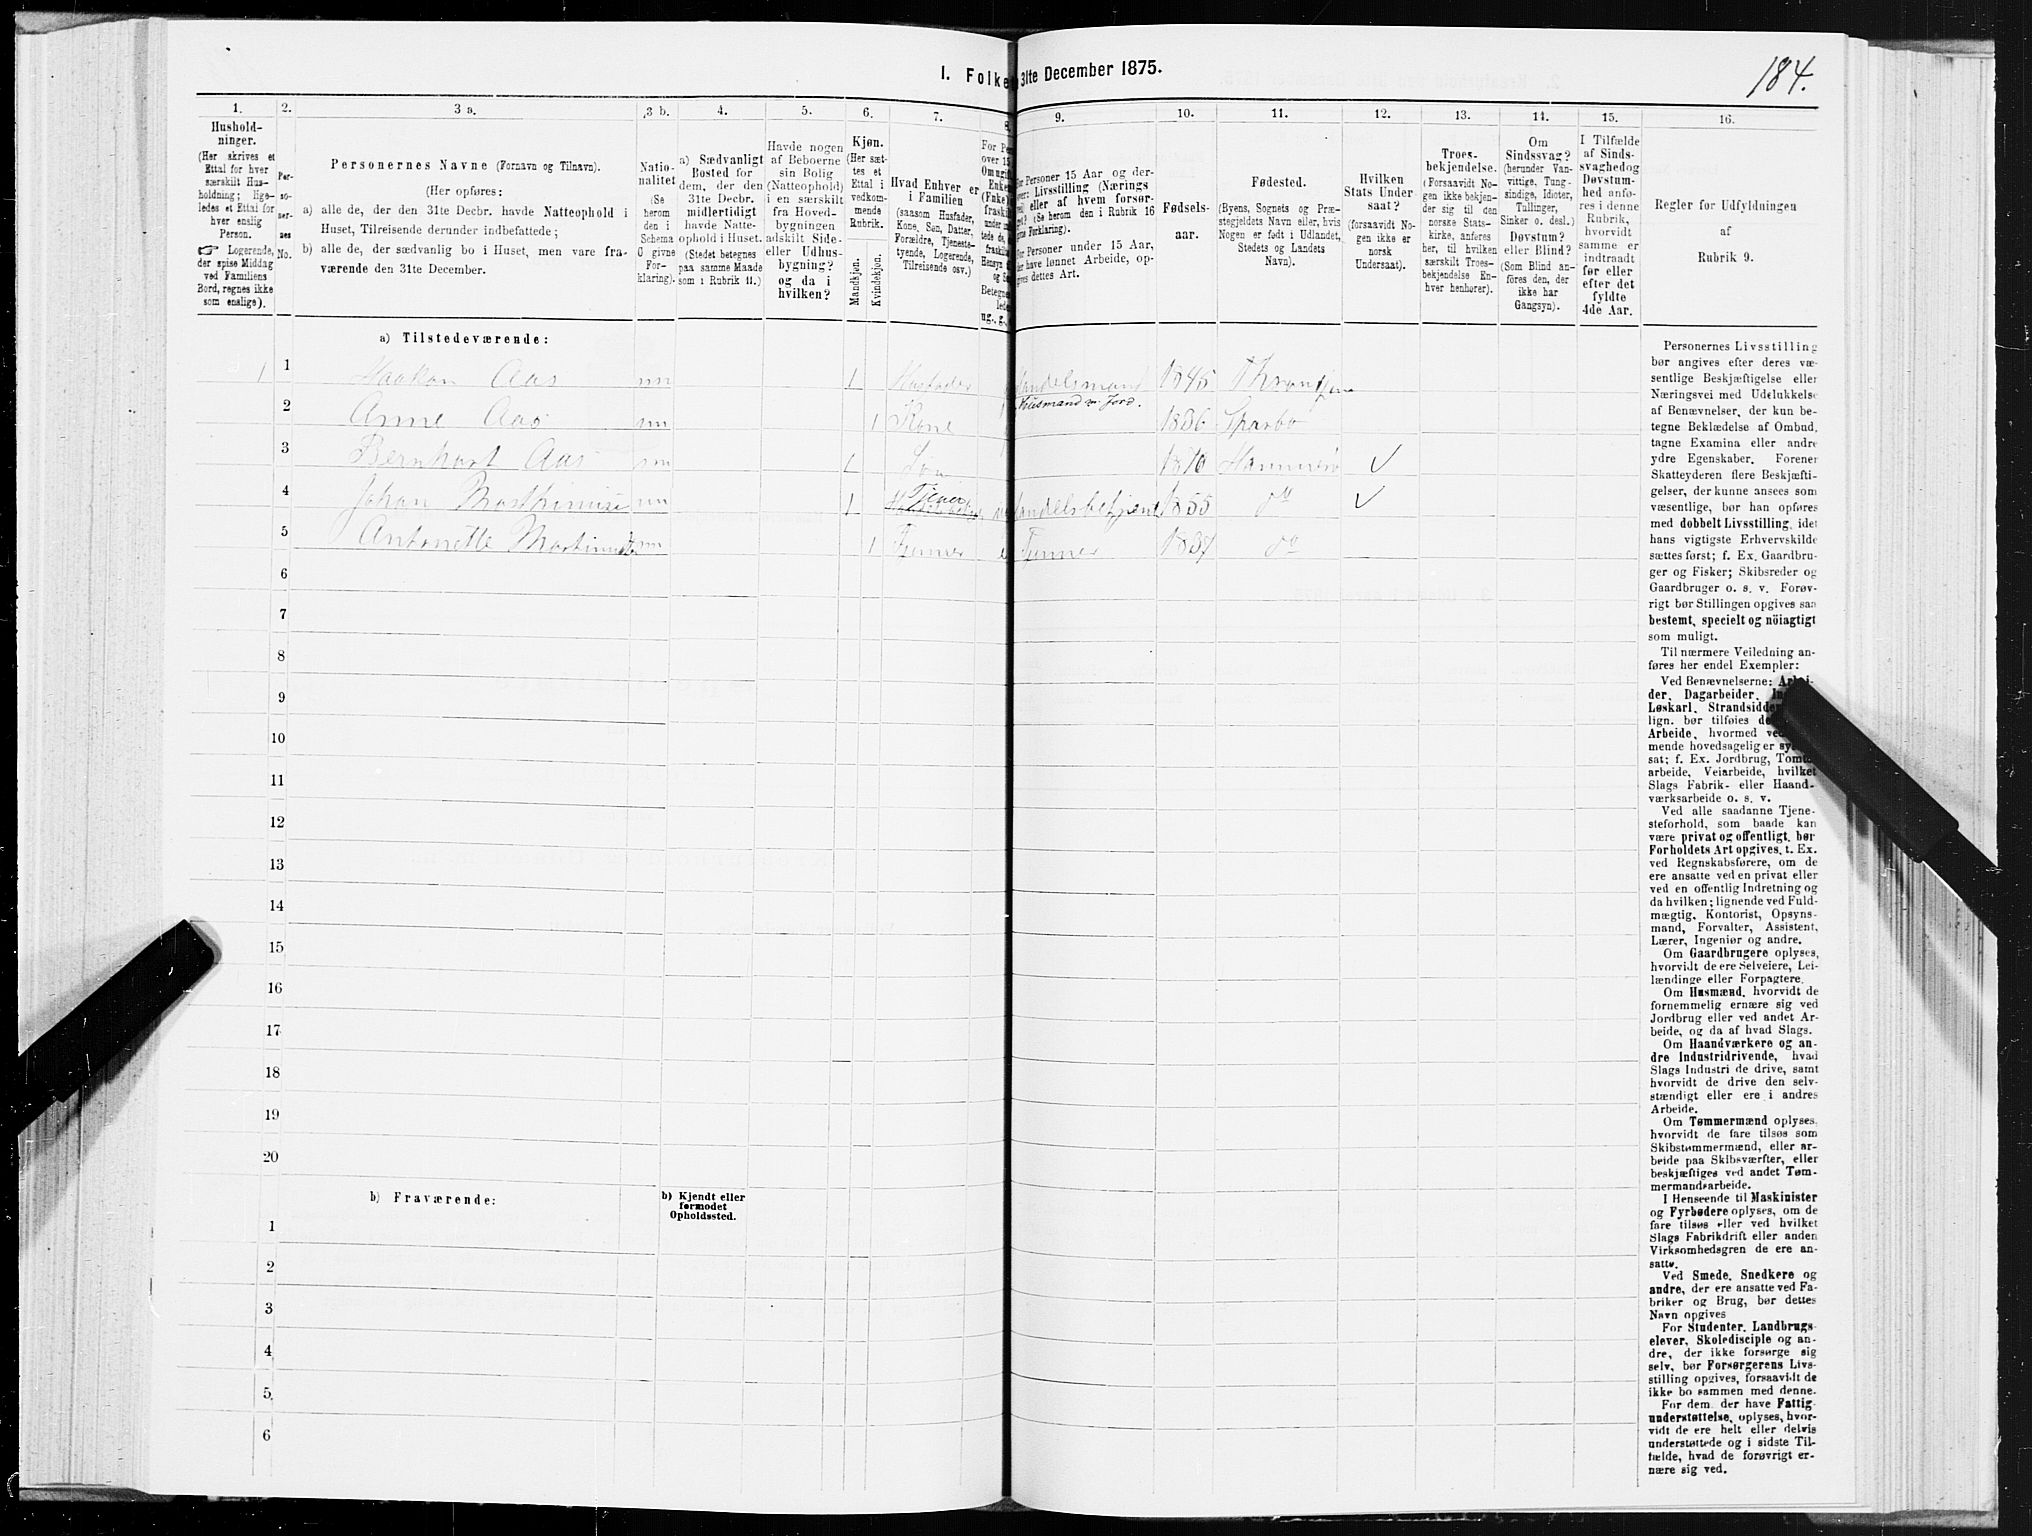 184.
I. Folke 31te December 1875.
1. 2. 3 a. 3 b. 4. 5. 6. 7. 8. 9. 10. 11. 12. 13. 14. 15. 16.
Hushold-
ninger.
(Her skrives et
Ettal for hver
særskilt Hus-
holdning; lige-
ledes et Ettal for
hver enslig
Person.
☞ Logerende,
der spise Middag
ved Familiens
Bord, regnes ikke
som enslige).
Per-
so-
ner-
nes
No.
Personernes Navne (Fornavn og Tilnavn).
(Her opføres:
a) alle de, der den 31te Decbr. havde Natteophold i
Huset, Tilreisende derunder indbefattede;
b) alle de, der sædvanlig bo i Huset, men vare fra-
værende den 31te December.
Natio-
nalitet
(Se
herom
den i
Schema
0 givne
For-
klaring).
a) Sædvanligt
Bosted for
dem, der den
31te Decbr.
midlertidigt
havde Natte-
ophold i Huset.
(Stedet betegnes
paa samme Maade
som i Rubrik 11.)
Havde nogen
af Beboerne
sin Bolig
(Natteophold)
i en særskilt
fra Hoved-
bygningen
adskilt Side-
eller Udhus-
bygning?
og da i
hvilken?
Kjøn.
(Her sæt-
tes et
Ettal i
vedkom-
mende
Rubrik.
Mandkjøn.
Kvindekjøn.
Hvad Enhver er
i Familien
(saasom Husfader,
Kone, Søn, Datter,
Forældre, Tjeneste-
tyende, Logerende,
Tilreisende osv.)
For Pe
over 15
Omugift
Enke
(Enke)
fraskil
Hensyn
og S
Betegne
lede
ug., g.,
For Personer 15 Aar og der-
over: Livsstilling (Nærings
vei) eller af hvem forsør-
get? (Se herom den i Rubrik 16
givne Forklaring).
For Personer under 15 Aar,
der have lønnet Arbeide, op-
gives dettes Art.
Fødsels-
aar.
Fødested.
(Byens, Sognets og Præ-
stegjeldets Navn eller, hvis
Nogen er født i Udlandet,
Stedets og Landets
Navn).
Hvilken
Stats Under
saat?
(forsaavidt No-
gen ikke er
norsk
Undersaat).
Troes-
bekjendelse.
(Forsaavidt No-
gen ikke bekjen-
der sig til den
norske Stats-
kirke, anføres
her, til hvilken
særskilt Troes-
bekjendelse En-
hver henhører).
Om
Sindssvag?
(herunder Van-
vittige, Tung-
sindige, Idioter,
Tullinger,
Sinker o. desl.)
Døvstum?
eller Blind?
(Som Blind an-
føres den, der
ikke har
Gangsyn).
I Tilfælde
af Sinds-
svaghed og
Døvstum-
hed anfø-
res i denne
Rubrik,
hvorvidt
samme er
indtraadt
før eller
efter det
fyldte
4de Aar.
Regler for Udfyldningen
af
Rubrik 9.
a) Tilstedeværende:
1 1 Haakon Aas nn 1 Husfader Handelsmand 1845 Throndhjem
Husmand m. Jord.
2 Anne Aas nn 1 Kone 1836 Sparbo
3 Bernhart Aas nn 1 Søn 1870 Hammerø ✓
4 Johan nn 1 Tjener Handelsbetjent 1855 do ✓
5 Antonette nn 1 Tjener Tjener 1837 do
6
7
8
9
10
11
12
13
14
15
16
17
18
19
20
b) Fraværende:
b) Kjendt eller
formodet
Opholdssted.
1
2
3
4
5
6
Personernes Livsstilling
bør angives efter deres væ-
sentlige Beskjæftigelse eller
Næringsvei med Udelukkelse
af Benævnelser, der kun be-
tegne Beklædelse af Ombud,
tagne Examina eller andre
ydre Egenskaber. Forener
Skatteyderen flere Beskjæfti-
gelser, der kunne ansees som
væsentlige, bør han opføres
med dobbelt Livsstilling, idet
hans vigtigste Erhvervskilde
sættes først; f. Ex. Gaardbru-
ger og Fisker; Skibsreder og
Gaardbruger o. s. v. Forøv-
rigt bør Stillingen opgives saa
bestemt, specielt og nöiagtigt
som muligt.
Til nærmere Veiledning an-
føres her endel Exempler:
Ved Benævnelserne: Arbei-
der, Dagarbeider, In
Løskarl, Strandsidder
lign. bør tilføies de
Arbeide, hvormed ved
mende hovedsagelig er sys
sat; f. Ex. Jordbrug, Tomt
arbeide, Veiarbeide, hvilket
Slags Fabrik- eller Haand-
værksarbeide o. s. v.
Ved alle saadanne Tjene-
steforhold, som baade kan
være privat og offentligt, bør
Forholdets Art opgives, t. Ex.
ved Regnskabsførere, om de
ere ansatte ved en privat eller
ved en offentlig Indretning og
da hvilken; lignende ved Fuld-
mægtig, Kontorist, Opsyns-
mand, Forvalter, Assistent,
Lærer, Ingeniør og andre.
Om Gaardbrugere oplyses,
hvorvidt de ere Selveiere, Lei-
lændinge eller Forpagtere.
Om Husmænd, hvorvidt de
fornemmelig ernære sig ved
Jordbrug eller ved andet Ar-
beide, og da af hvad Slags.
Om Haandværkere og an-
dre Industridrivende, hvad
Slags Industri de drive, samt
hvorvidt de drive den selv-
stændigt eller ere i andres
Arbeide.
Om Tømmermænd oplyses,
hvorvidt de fare tilsøs som
Skibstømmermænd, eller ar-
beide paa Skibsværfter, eller
beskjæftiges ved andet Tøm-
mermandsarbeide.
I Henseende til Maskinister
og Fyrbødere oplyses, om de
fare tilsøs eller ved hvilket
Slags Fabrikdrift eller anden
Virksomhedsgren de ere an-
satte.
Ved Smede, Snedkere og
andre, der ere ansatte ved Fa-
briker og Brug, bør dettes
Navn opgives
For Studenter, Landbrugs-
elever, Skoledisciple og an-
dre, der ikke forsørge sig
selv, bør Forsørgerens Livs-
stilling opgives, forsaavidt de
ikke bo sammen med denne.
For dem, der have Fattig-
understøttelse, oplyses, hvor-
vidt de ere helt eller delvis
understøttede og i sidste Til-
fælde, hvad de forøvrigt er-
nære sig ved.